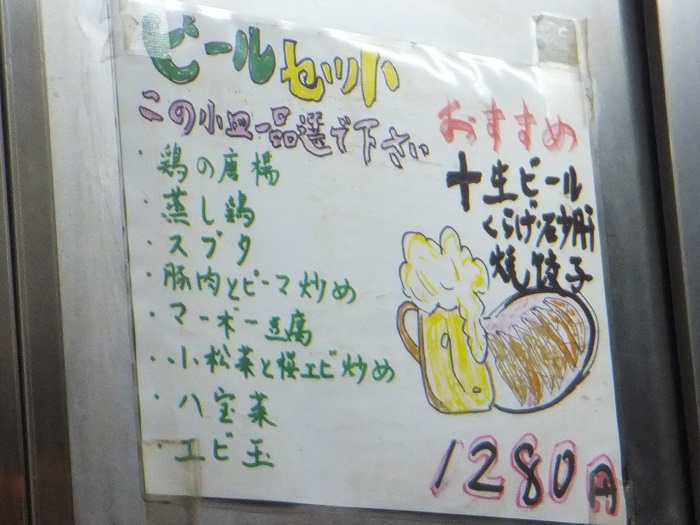 ビールセット
この小皿一品選で下さい
・鶏の唐揚
・蒸し鶏
・スブタ
・豚肉とピーマ炒め
・マーボー豆腐
・小松菜と桜エビ炒め
・八宝菜
・エビ玉
おすすめ
+生ビール
くらげ・砂肝
焼餃子
1280円